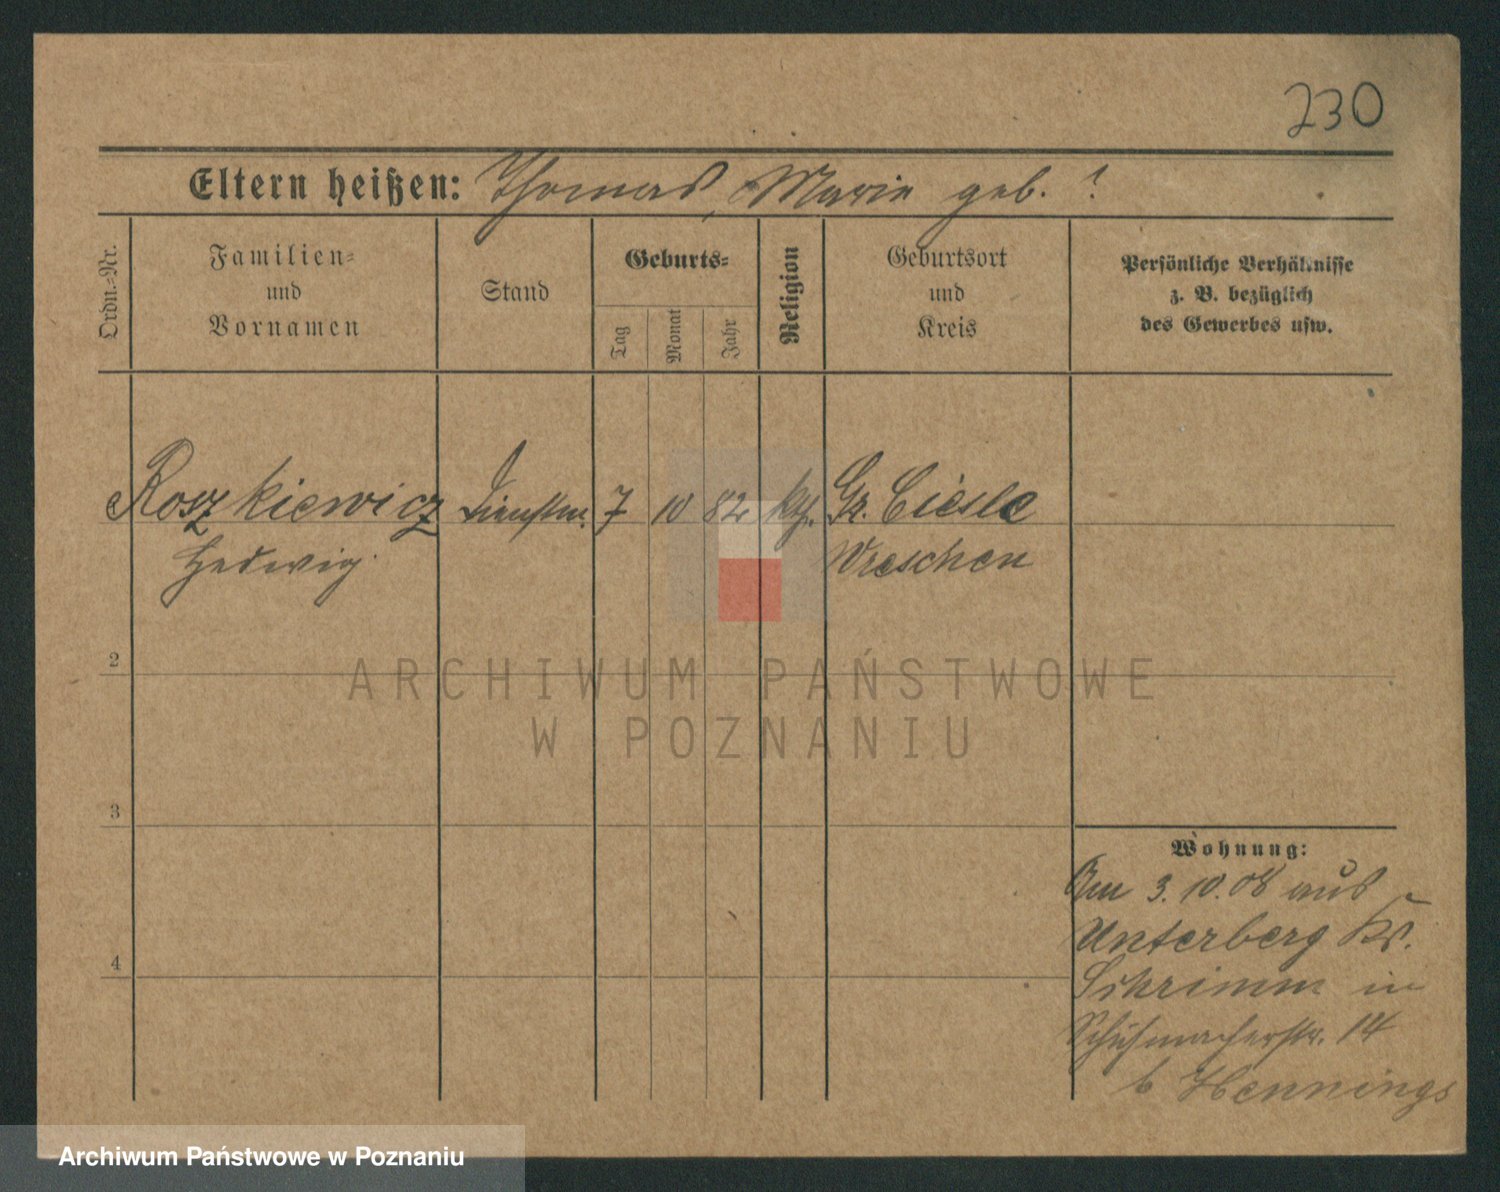 230
Eltern heißen: Thomas, Marie geb. ?
Ordn.-Nr.
Familien-
und
Vornamen
Stand
Geburts-
Tag
Monat
Jahr
Religion
Geburtsort
und
Kreis
Persönliche Verhältnisse
z. B. bezüglich
des Gewerbes usw.
Roszkiewicz Dienstm. 7 10 82 kth. Gr. Ciesle
Hedwig Wreschen
2
ARCHIWUM PAŃSTWOWE
W POZNANIU
3
Wohnung:
Am 3.10.08 aus
Unterberg Kr.
4
Schrimm in
Schuhmacherstr. 14
b Hennings
Archiwum Państwowe w Poznaniu